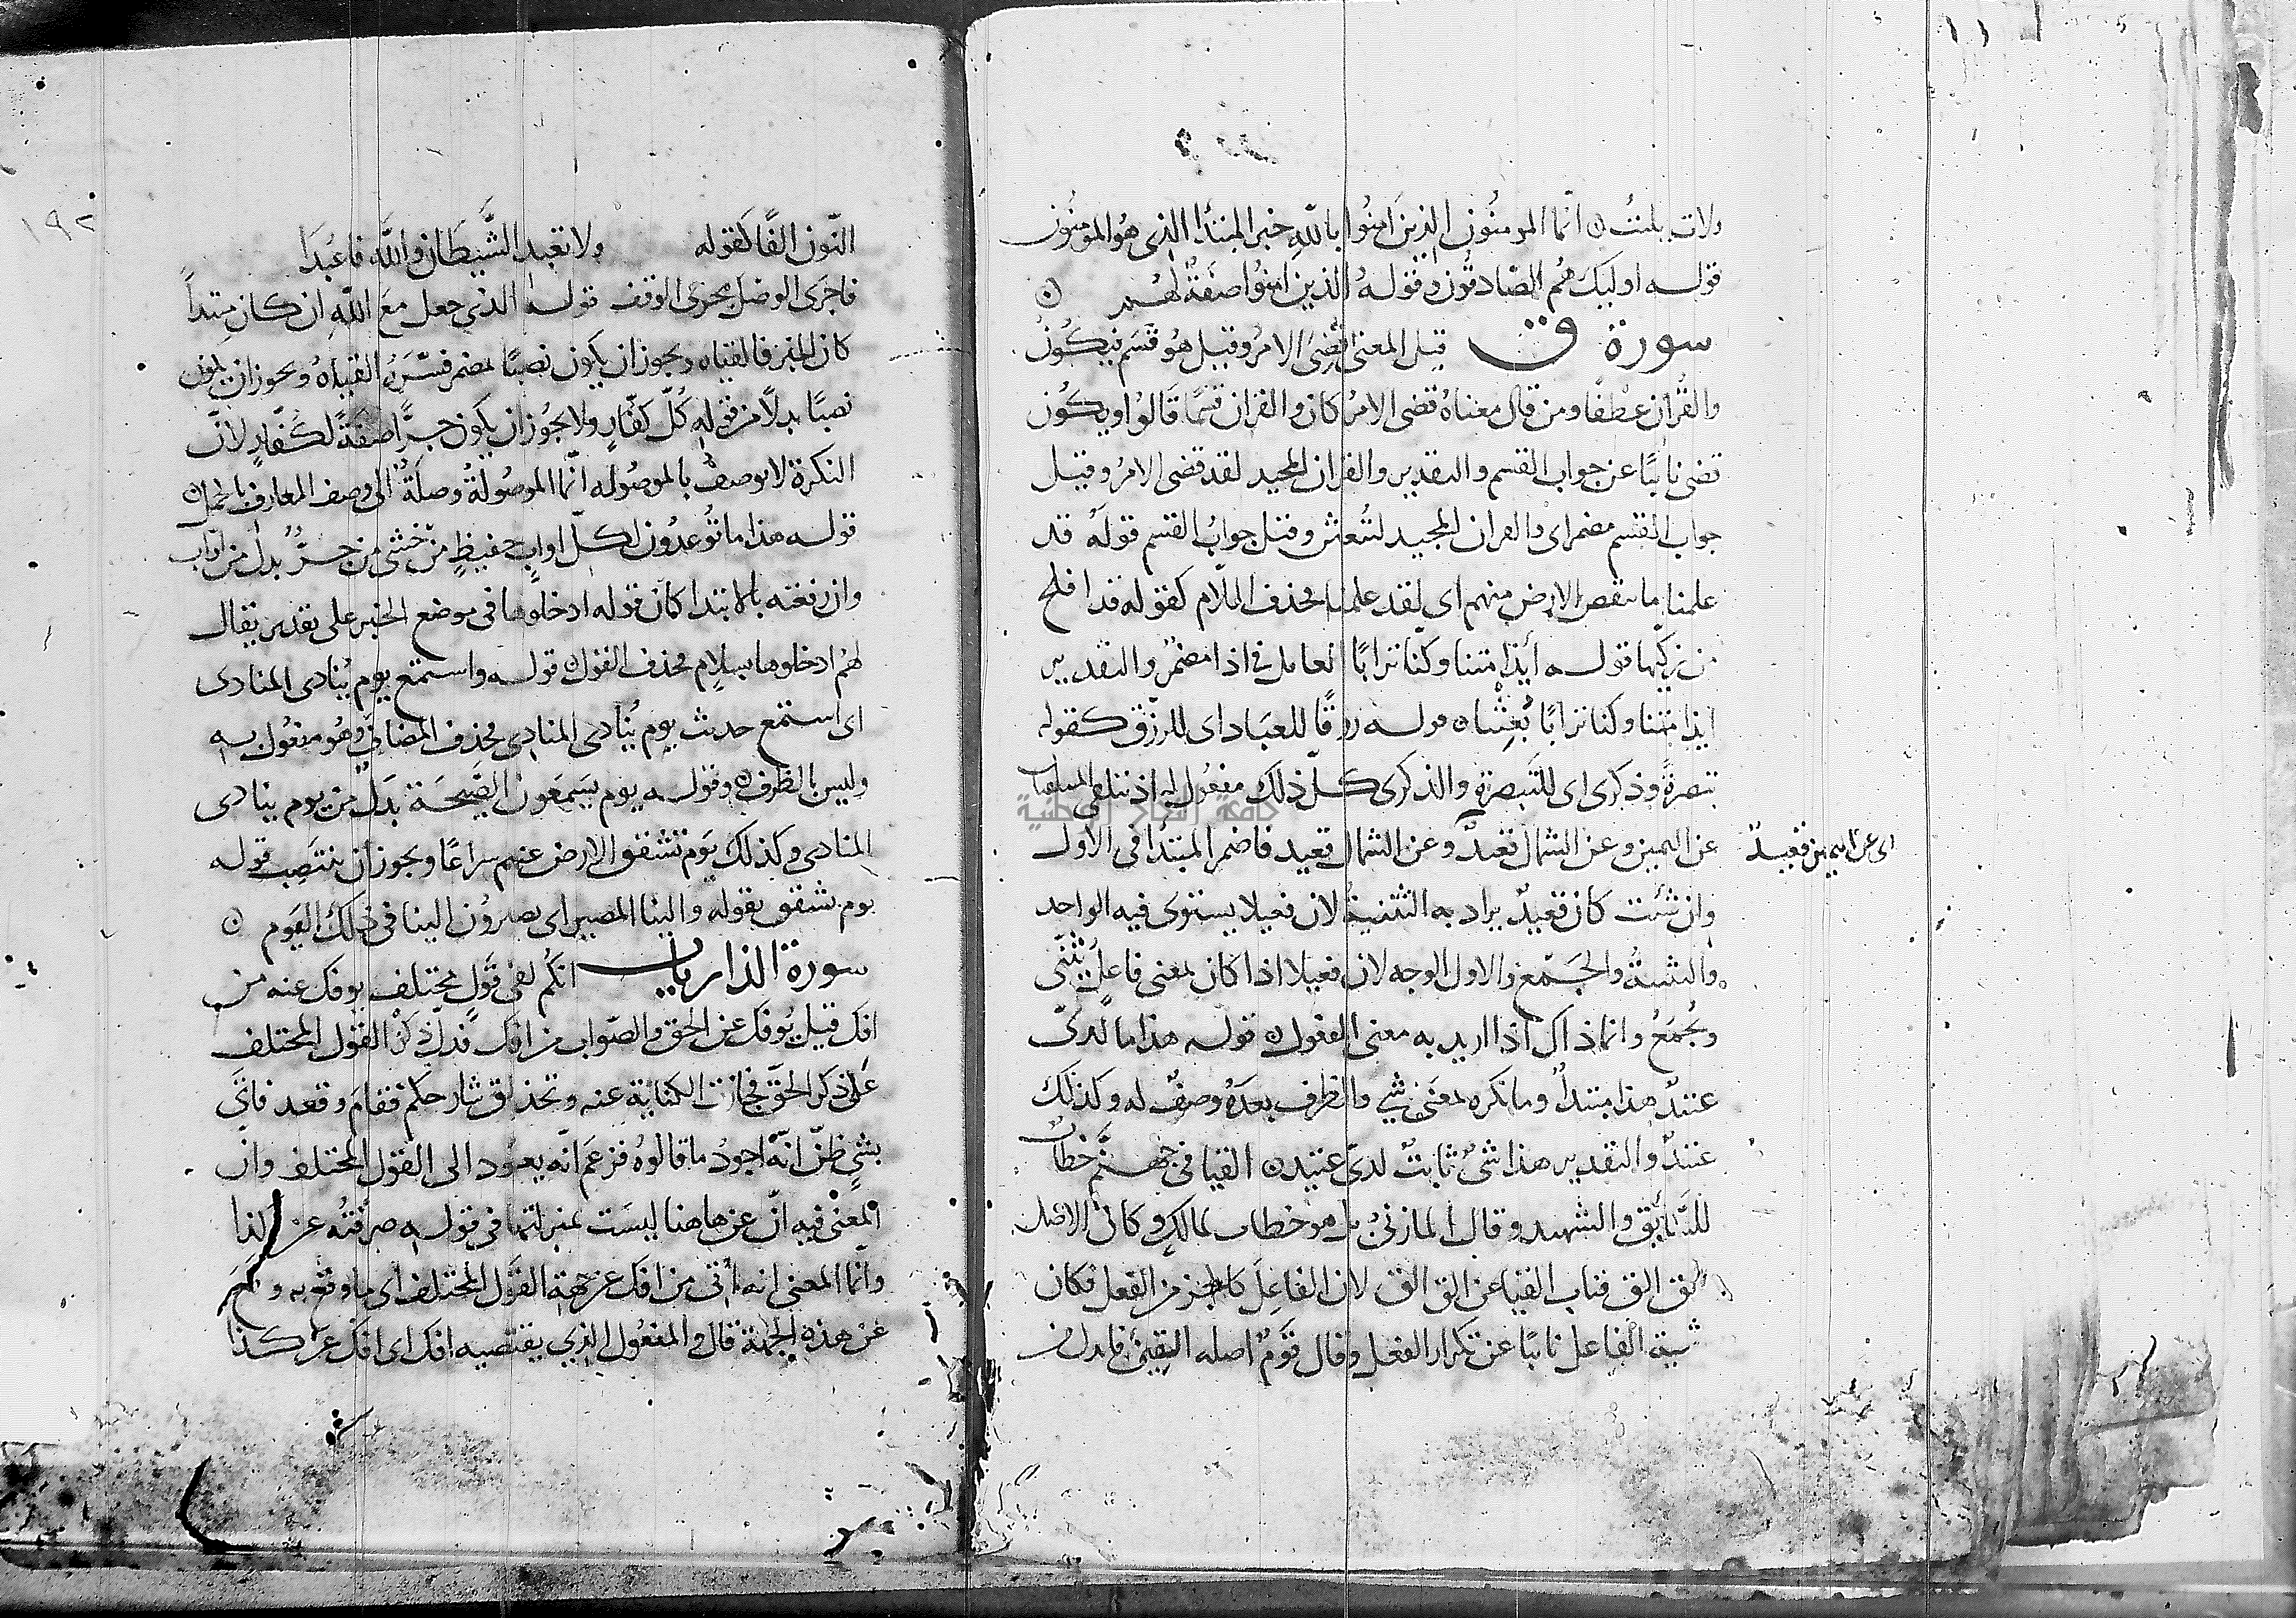 ولات يلت ن انما المومنون الذين امنوا بالله خبر المبتدا الذى هو المومنون
قوله اوليك هم الصادقون وقوله الذين امنوا صفة لهم ن
سورة ق قيل المعنى قضى الامر وقيل هو قسم فيكون
والقران عطفا ومن قال معناه قضى الامر كان والقران قسما قالوا ويكون
قضى نايبا عن جواب القسم والتقدير والقران المجيد لقد قضى الامر وقيل
جواب القسم مضمر اى والقران المجيد لتبعثن وقيل جواب القسم قوله قد
علمنا ما تنقص الارض منهم اى لقد علمنا فحذف اللام كقوله قد افلح
من زكيها قوله أيذا متنا وكنا ترابا العامل فى اذا مضمر والتقدير
ايذا متنا وكنا ترابا بعثنا ن قوله رزقا للعباد اى للرزق كقوله
تبصرة وذكرى اى للتبصرة والذكرى كل ذلك مفعول له اذ تتلقى المتلقيان
عن اليمين وعن الشمال قعيد وعن الشمال قعيد فاضمر المبتدا فى الاول
اى عن اليمين قعيد
وان شئت كان قعيد يراد به التثنية لان فعيلا يستوى فيه الواحد
والتثنية والجمع والاول الوجه لان فعيلا اذا كان بمعنى فاعل يثنى
ويجمع وانما ذاك اذا اريد به معنى المفعول ن قوله هذا ما لدى
عتيد هذا مبتدا وما نكره بمعنى شي والظرف بعده وصف له وكذلك
عتيد والتقدير هذا شي ثابت لدى عتيد ن القيا فى جهنم خطاب
للسايق والشهيد وقال المازنى بل هو خطاب لمالك وكان الاصل
الق الق فناب القيا عن الق الق لان الفاعل كالجز من الفعل فكان
تثنية الفاعل نايبا عن تكرار الفعل وقال قوم اصله القين فابدل من
١٩٢
النون الفا كقوله ولا تعبد الشيطان والله فاعبدا
فاجرى الوصل مجرى الوقف قوله الذى جعل مع الله ان كان مبتدا
كان الخبر فالقياه ويجوز ان يكون نصبا لمضمر فسره القياه ويجوز ان يكون
نصبا بدلا من قوله كل كفار ولا يجوز ان يكون جرا صفة لكفار لان
النكرة لا توصف بالموصوله انما الموصولة وصلة الى وصف المعارف بالجمل ن
قوله هذا ما توعدون لكل اواب حفيظ من خشى من جر بدل من اواب
وان رفعته بالابتدا كان قوله ادخلوها فى موضع الخبر على تقدير يقال
لهم ادخلوها بسلام فحذف القول ن قوله واستمع يوم ينادى المنادى
اى استمع حديث يوم ينادى المنادى فحذف المضاف وهو مفعول به
وليس بالظرف ن وقوله يوم يسمعون الصيحة بدل من يوم ينادى
المنادى وكذلك يوم تشقق الارض عنهم سراعا ويجوز ان ينتصب قوله
يوم تشقق بقوله والينا المصير اى يصيرون الينا فى ذلك اليوم ن
سورة الذاريات انكم لفى قول مختلف يوفك عنه من
افك قيل يوفك عن الحق والصواب من افك فدل ذكر القول المختلف
على ذكر الحق فجازت الكناية عنه وتحذلق شارحكم فقام وقعد فاتى
بشي ظن انه اجود ما قالوه فزعم انه يعود الى القول المختلف وان
المعنى فيه ان عن هاهنا ليست بمنزلتها فى قوله صرفته عن كذا
وانما المعنى انه اتى من افك عن جهة القول المختلف اى ما وقع به وقع
عن هذه الجهة قال والمفعول الذي يقتضيه افك اى افك عن كذا